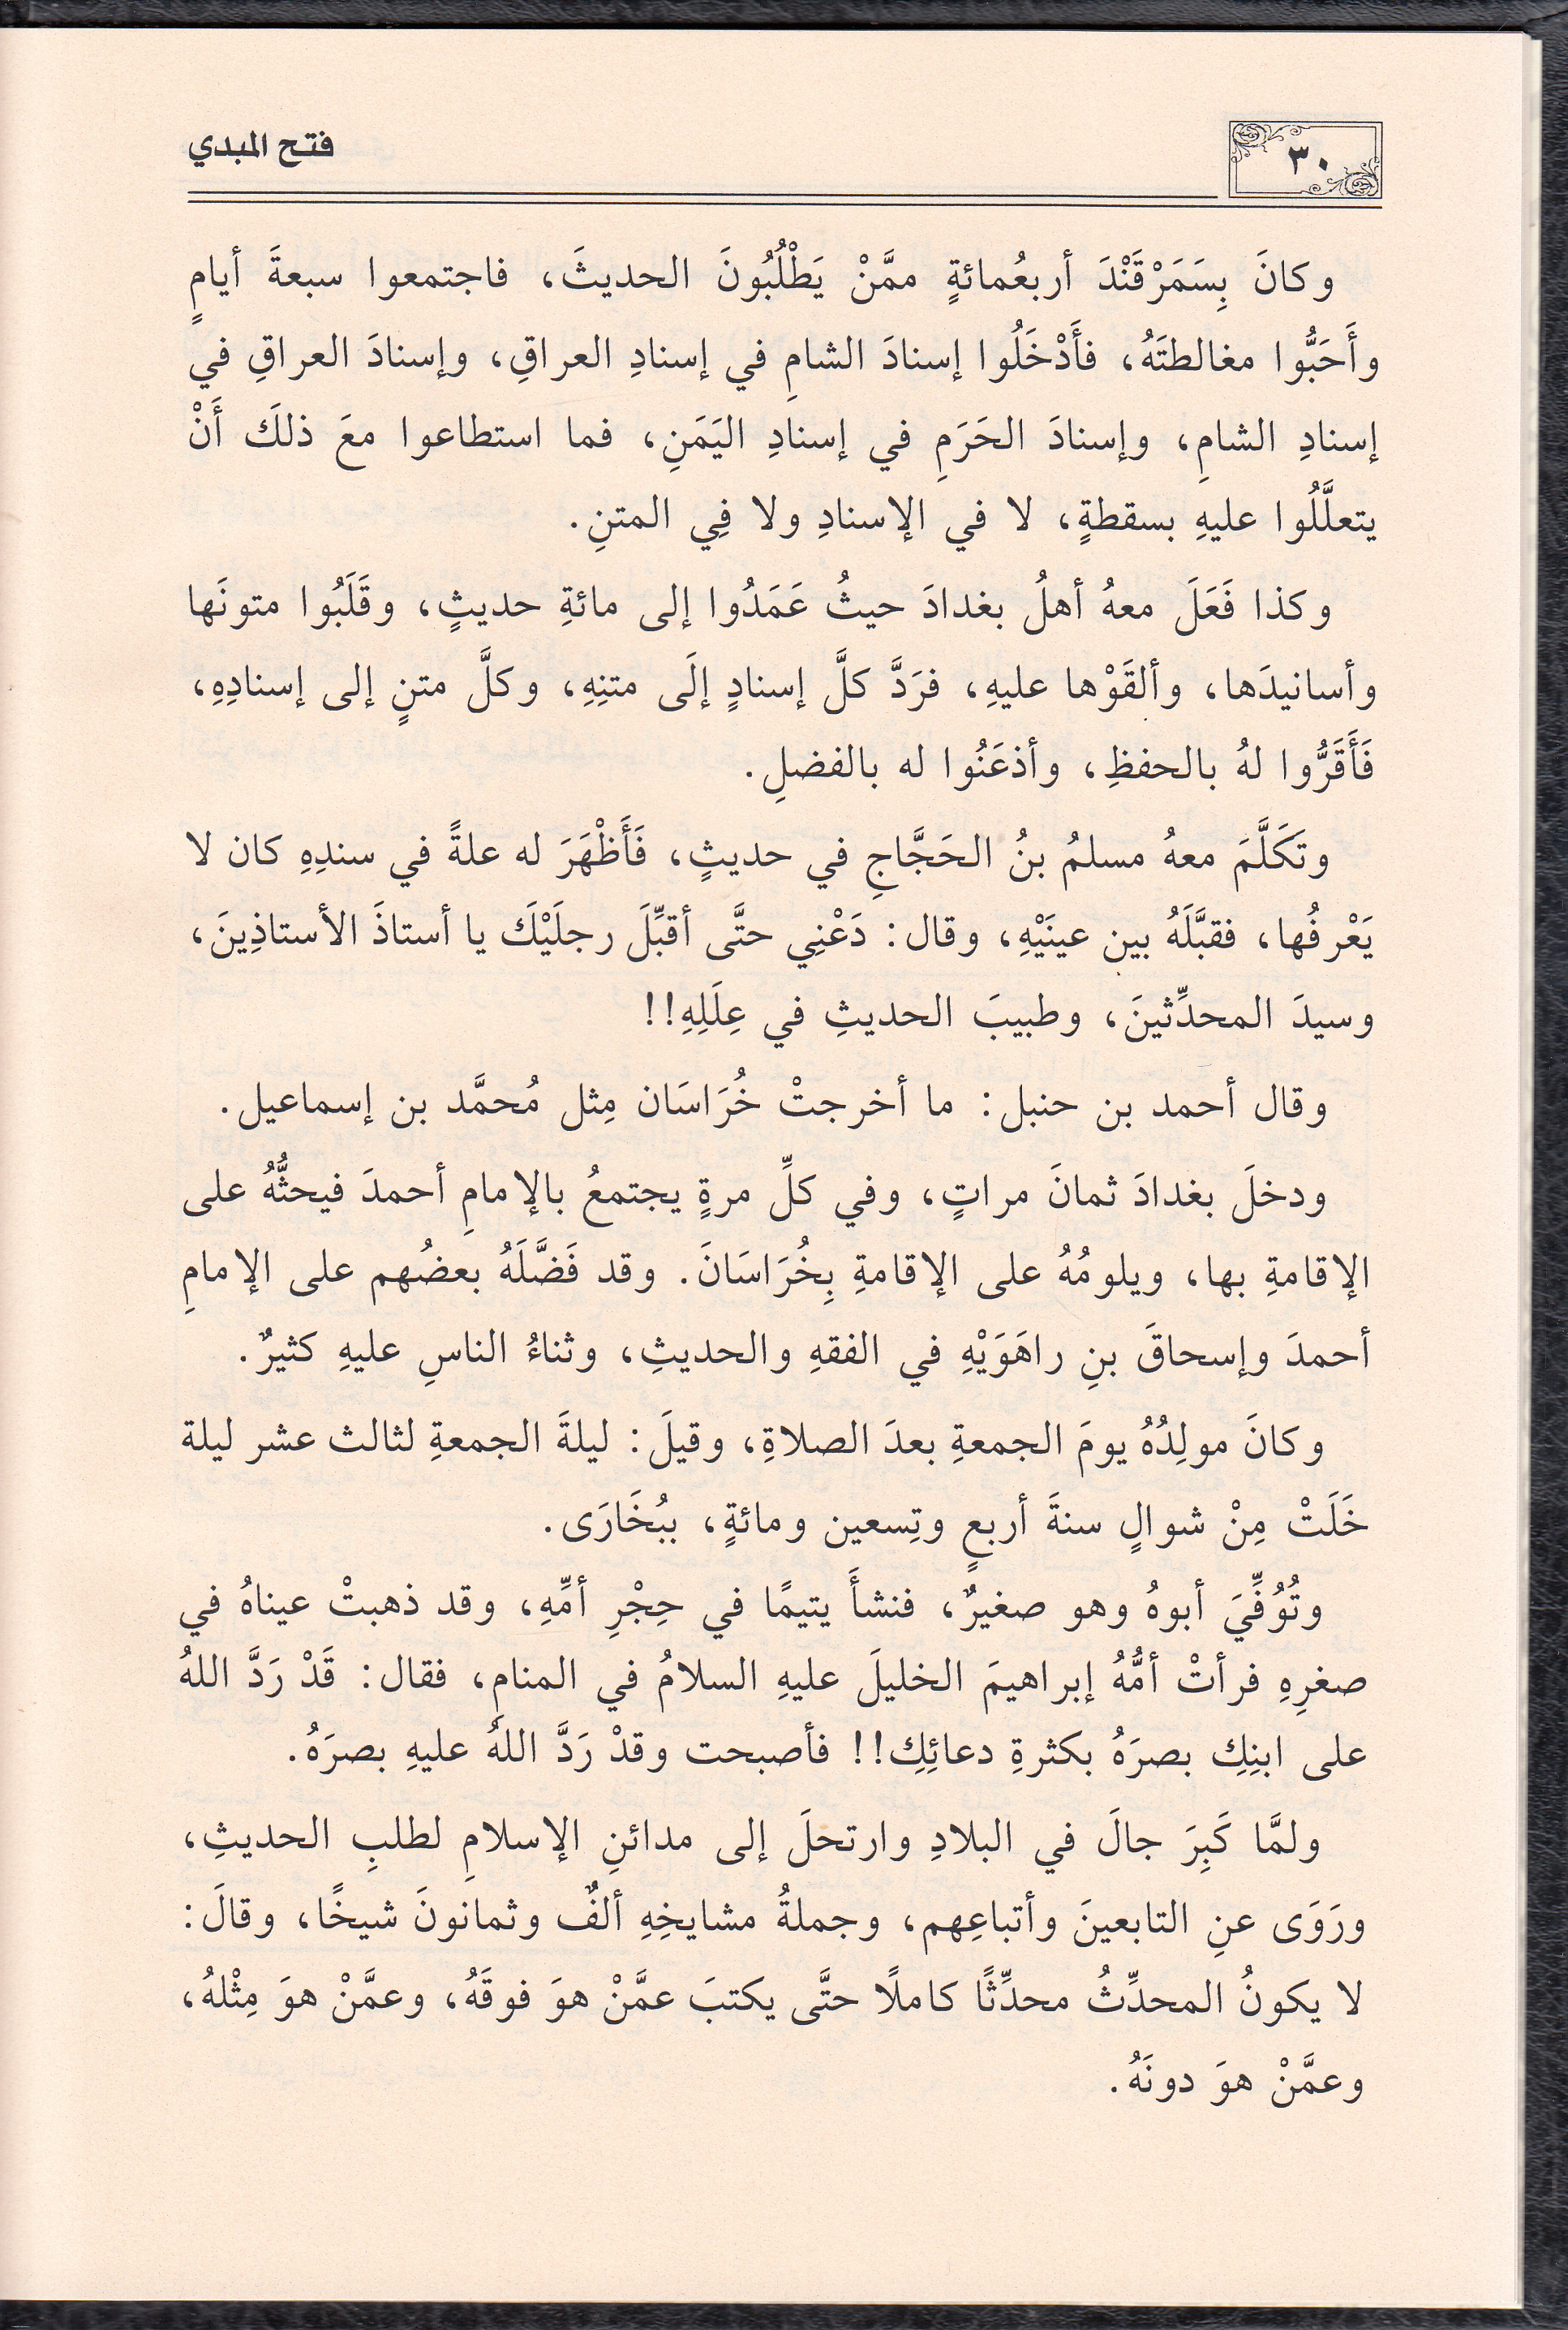 ٣٠
فتح المبدي
وكانَ بِسَمَرْقَنْدَ أربعُمائةٍ ممَّنْ يَطْلُبُونَ الحديثَ، فاجتمعوا سبعةَ أيامٍ
وأَحَبُّوا مغالطتَهُ، فأَدْخَلُوا إسنادَ الشامِ في إسنادِ العراقِ، وإسنادَ العراقِ في
إسنادِ الشامِ، وإسنادَ الحَرَمِ في إسنادِ اليَمَنِ، فما استطاعوا معَ ذلكَ أَنْ
يتعلَّلُوا عليهِ بسقطةٍ، لا في الإسنادِ ولا فِي المتنِ.
وكذا فَعَلَ معهُ أهلُ بغدادَ حيثُ عَمَدُوا إلى مائةِ حديثٍ، وقَلَبُوا متونَها
وأسانيدَها، وألقَوْها عليهِ، فرَدَّ كلَّ إسنادٍ إلَى متنِهِ، وكلَّ متنٍ إلى إسنادِهِ،
فَأَقَرُّوا لهُ بالحفظِ، وأذعَنُوا له بالفضلِ.
وتَكَلَّمَ معهُ مسلمُ بنُ الحَجَّاجِ في حديثٍ، فَأَظْهَرَ له علةً في سندِهِ كان لا
يَعْرفُها، فقبَّلَهُ بين عينَيْهِ، وقال: دَعْنِي حتَّى أقبِّلَ رجلَيْكَ يا أستاذَ الأستاذِينَ،
وسيدَ المحدِّثينَ، وطبيبَ الحديثِ في عِلَلِهِ!!
وقال أحمد بن حنبل: ما أخرجتْ خُرَاسَان مِثل مُحمَّد بن إسماعيل.
ودخلَ بغدادَ ثمانَ مراتٍ، وفي كلِّ مرةٍ يجتمعُ بالإمامِ أحمدَ فيحثُّهُ على
الإقامةِ بها، ويلومُهُ على الإقامةِ بِخُرَاسَانَ. وقد فَضَّلَهُ بعضُهم على الإمامِ
أحمدَ وإسحاقَ بنِ راهَوَيْهِ في الفقهِ والحديثِ، وثناءُ الناسِ عليهِ كثيرٌ.
وكانَ مولِدُهُ يومَ الجمعةِ بعدَ الصلاةِ، وقيلَ: ليلةَ الجمعةِ لثالث عشر ليلة
خَلَتْ مِنْ شوالٍ سنةَ أربعٍ وتِسعين ومائةٍ، ببُخَارَى.
وتُوُفِّيَ أبوهُ وهو صغيرٌ، فنشأَ يتيمًا في حِجْرِ أمِّهِ، وقد ذهبتْ عيناهُ في
صغرِهِ فرأتْ أمُّهُ إبراهيمَ الخليلَ عليهِ السلامُ في المنامِ، فقال: قَدْ رَدَّ اللهُ
على ابنِكِ بصرَهُ بكثرةِ دعائِكِ!! فأصبحت وقدْ رَدَّ اللهُ عليهِ بصرَهُ.
ولمَّا كَبِرَ جالَ في البلادِ وارتحلَ إلى مدائنِ الإسلامِ لطلبِ الحديثِ،
ورَوَى عنِ التابعينَ وأتباعِهم، وجملةُ مشايخِهِ ألفٌ وثمانونَ شيخًا، وقالَ:
لا يكونُ المحدِّثُ محدِّثًا كاملًا حتَّى يكتبَ عمَّنْ هوَ فوقَهُ، وعمَّنْ هوَ مِثْلهُ،
وعمَّنْ هوَ دونَهُ.